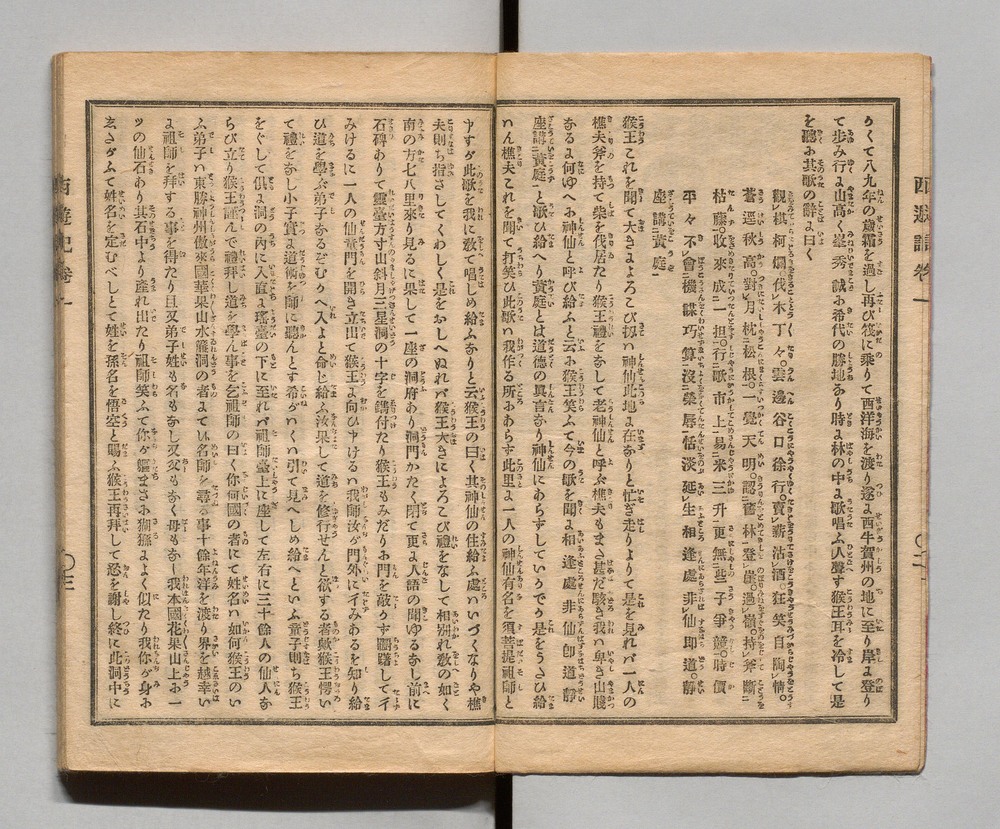 西遊記卷一
かくて八九年の歳霜を過し再び筏に乘りて西洋海を渡り遂よ西牛賀州の地に至り岸よ登り
て歩み行よ山高く峯秀誠よ希代の勝地あり時よ林の中よ歌唱ふ人聲す猴王耳を冷して是
を聽よ其歌の辭よ曰く
觀棋柯爛。伐木丁々雲邊谷口徐行。賣薪沽酒狂笑自陶情。
蒼逕秋高。對月枕松根。一覺天明。認舊林登崖。過嶺。持斧斷
枯藤。收來成一担。行歌市上易米三升更無些子爭競。時價
平々不會機謀巧算。沒榮辱恬淡延生相逢處非仙即道。靜
座講黄庭
猴王これを聞て大きよよろこび扨ハ神仙此地よ在ありと忙ぎ走りよりて是を見れバ一人の
樵夫斧を持て柴を伐居たり猴王禮をなして老神仙と呼ふ樵夫もまさ甚だ駭き我ハ卑き山賤
なるよ何ゆへよ神仙と呼び給ふと云よ猴王笑ふて今の歌を聞よ相逢處非仙即道靜
座講黄庭と歌ひ給へり黄庭とは道德の眞言なり神仙にあらずしていうでか是をうさひ給
わん樵夫これを聞て打笑ひ此歌ハ我作る所よあらす此里よ一人の神仙有名を須菩提祖師と
申すが此歌を我に敎て唱しめ給ふなりと云猴王の曰く其神仙の住給ふ處ハいづくなりや樵
夫則ち指さしてくわしく是をおしへぬれバ猴王大きによろこび禮をなして相別れ敎の如く
南の方七八里來り見るに果して一座の洞府あり洞門かたく閉て更よ人語の聞ゆるなし前に
石碑ありて靈臺方寸山斜月三星洞の十字を鐫付たり猴王もみだりよ門を敲うず躊躇してイ
みけるに一人の仙童門を開き立出て猴王よ向ひ申けるハ我師汝が門外にイみあるを知り給
ひ道を學ふ弟子なるぞむうへ入よと命じ給ふ汝果して道を修行せんと欲する者歟猴王愕い
て禮をなし小子實よ道術を師に聽んとす希がハくハ引て見へしめ給へといふ童子則ち猴王
をぐして倶よ洞の內に入直よ瑤臺の下に至れバ祖師臺上に座して左右に三十餘人の仙人な
らび立り猴王謹んで禮拜し道を學ん事を乞祖師の曰く你何國の者にて姓名ハ如何猴王のい
ふ弟子ハ東勝神州傲來國華果山水簾洞の者よて候名師を尋る事十餘年洋を渡り界を越幸い
よ祖師を拜する事を得たり且又弟子姓もなく名もなし又父もなく母もなし我本國花果山上よ一
ツの仙石あり其石中より産れ出たり祖師笑ふて你が軀まさよ猢猻よよく似たり我你が身よ
ゑさがふて姓名を定むべしとて姓を孫名を悟空と賜ふ猴王再拜して恐を謝し終に此洞中に
西遊記卷一